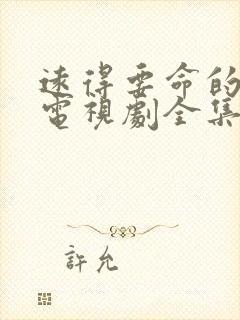 遠得要命的
電視劇全集
許允